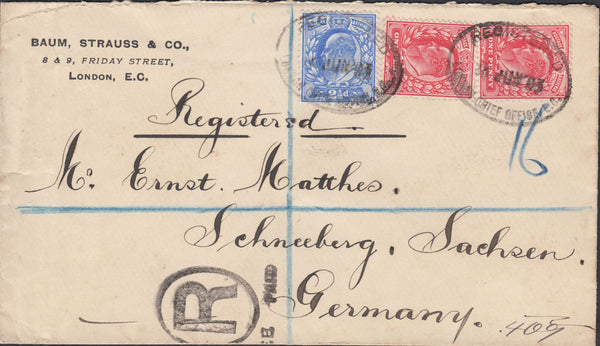 BAUM, STRAUSS & CO.,
8 & 9, FRIDAY STREET,
LONDON, E.C.
REGISTERED
REGISTERED
CHIEF OFFICE E.C.
2½d
ONE PENNY
16
Registered
Mr. Ernst. Matthes.
Schneeberg, Sachsen.
Germany.
R
PAID
409